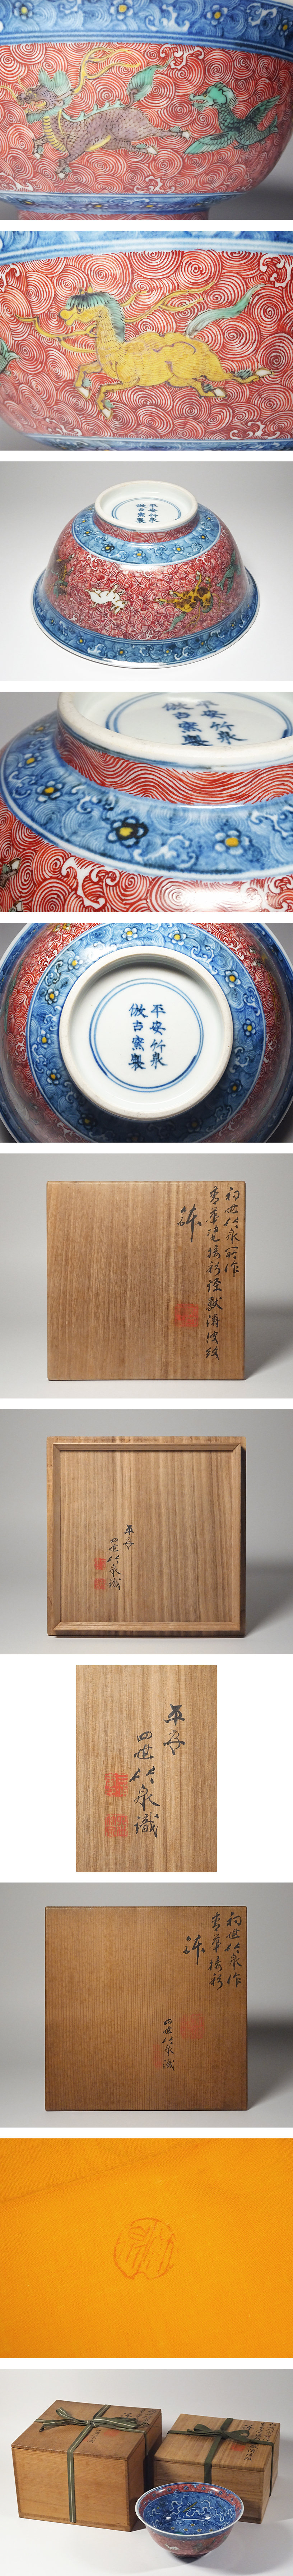 平安竹泉
倣古窯製
平安竹泉
倣古窯製
平安竹泉
倣古窯製
初世竹泉所作
青華瓷接彩怪獣濤波紋
鉢
平安
四世竹泉識
平安
四世竹泉識
初世竹泉作
青華接彩
鉢
四世竹泉識